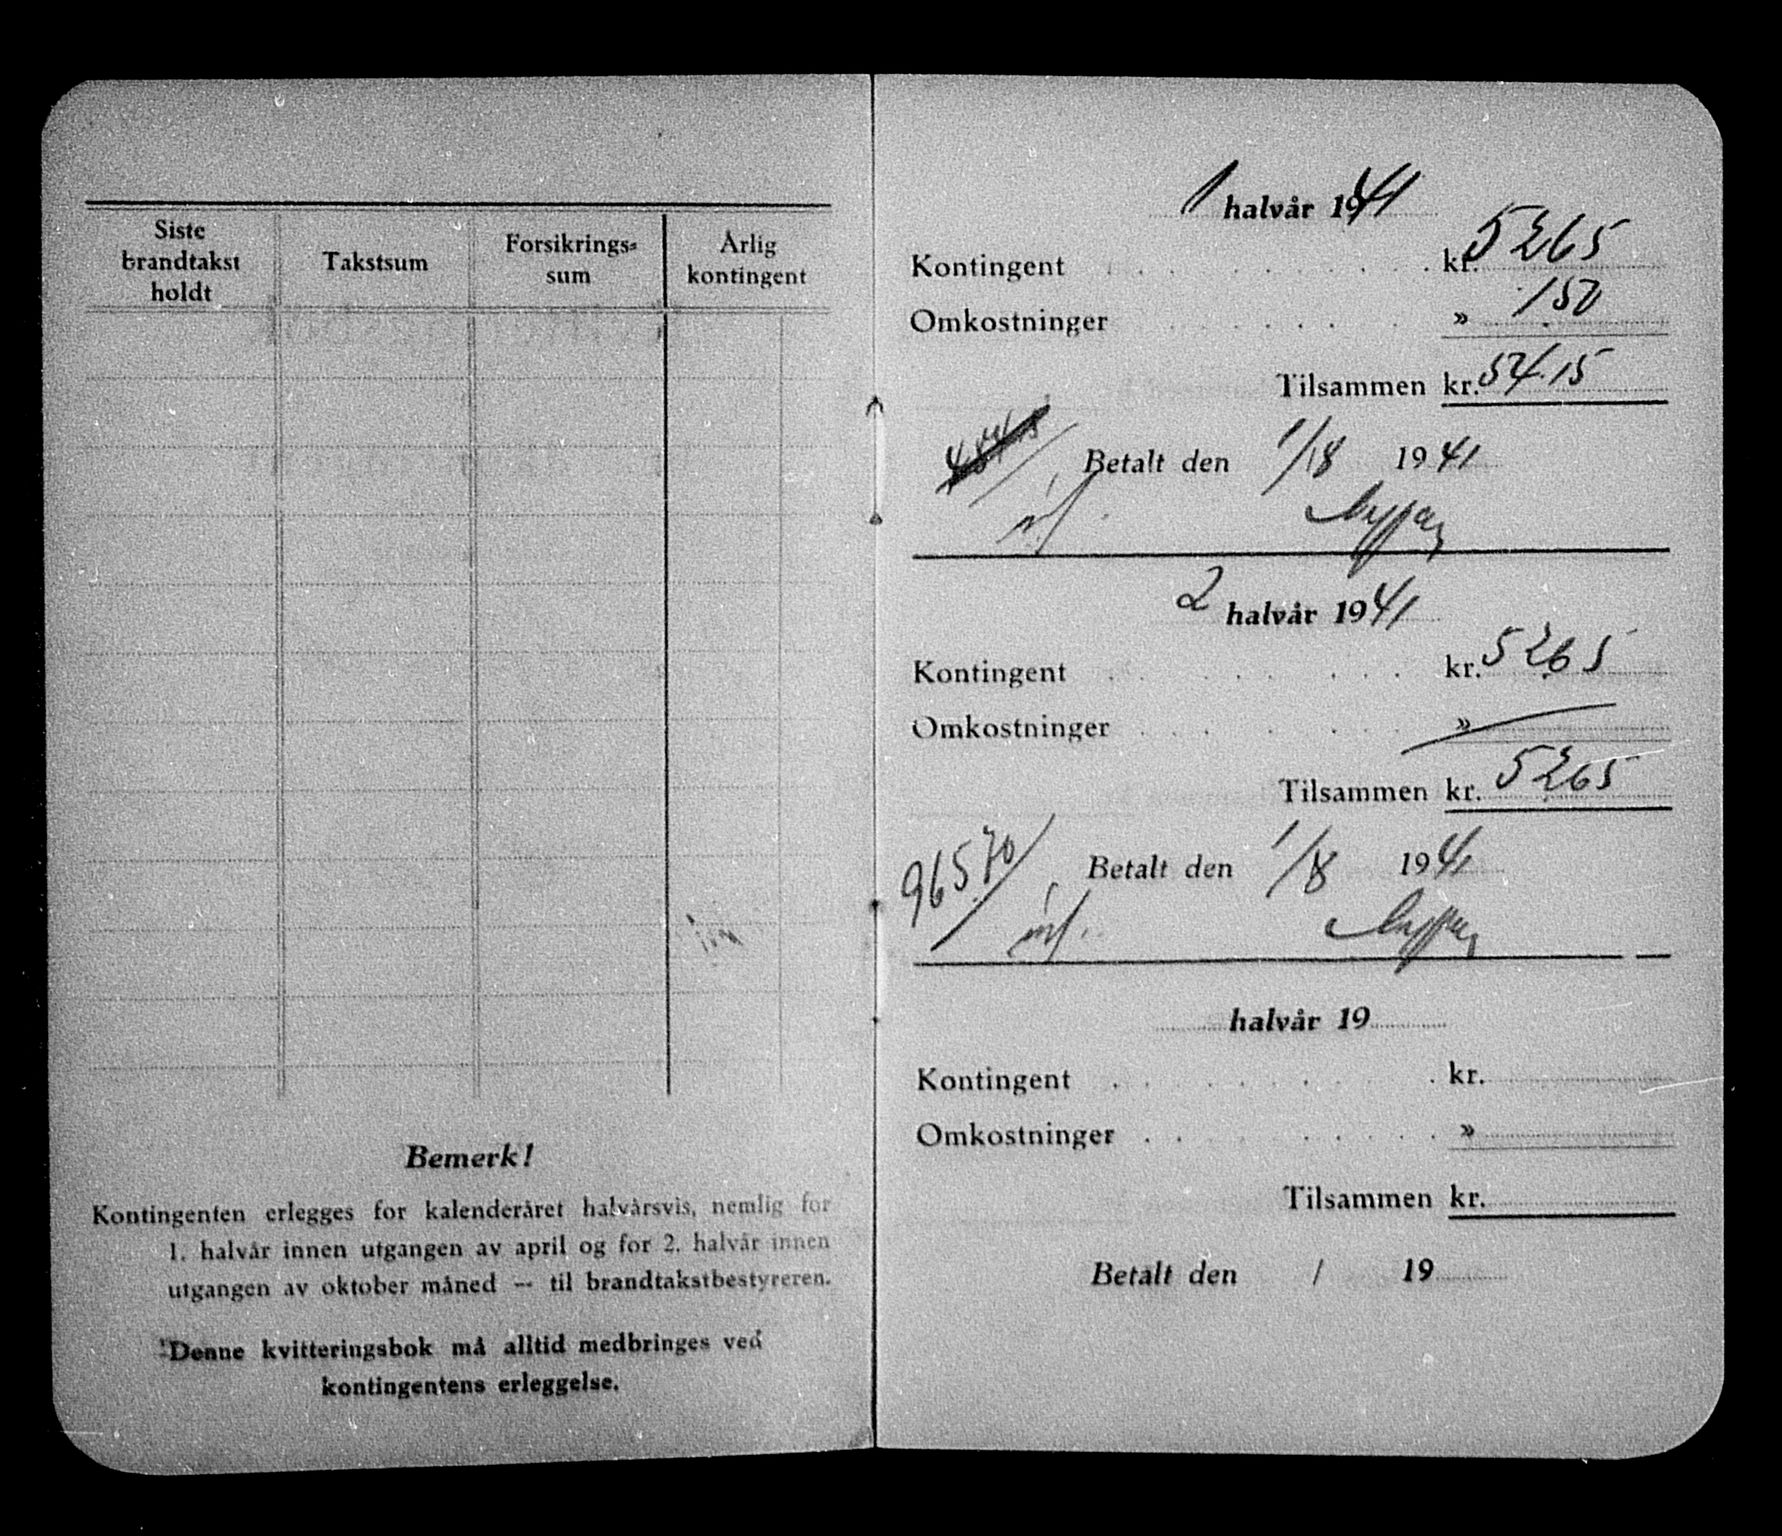 Siste
brandtakst
holdt
Takstsum
Forsikrings=
sum
Årlig
kontingent
Bemerk!
Kontingenten erlegges for kalenderåret halvårsvis, nemlig for
1. halvår innen utgangen av april og for 2. halvår innen
utgangen av oktober måned — til brandtakstbestyreren.
Denne kvitteringsbok må alltid medbringes ved
kontingentens erleggelse.
1 halvår 1941
Kontingent kr. 5265
Omkostninger » 150
Tilsammen kr. 5415
Betalt den 1/8 1941
2 halvår 1941
Kontingent kr. 5265
Omkostninger »
Tilsammen kr. 5265
965.70 Betalt den 1/8 1941
halvår 19
Kontingent kr.
Omkostninger »
Tilsammen kr.
Betalt den / 19